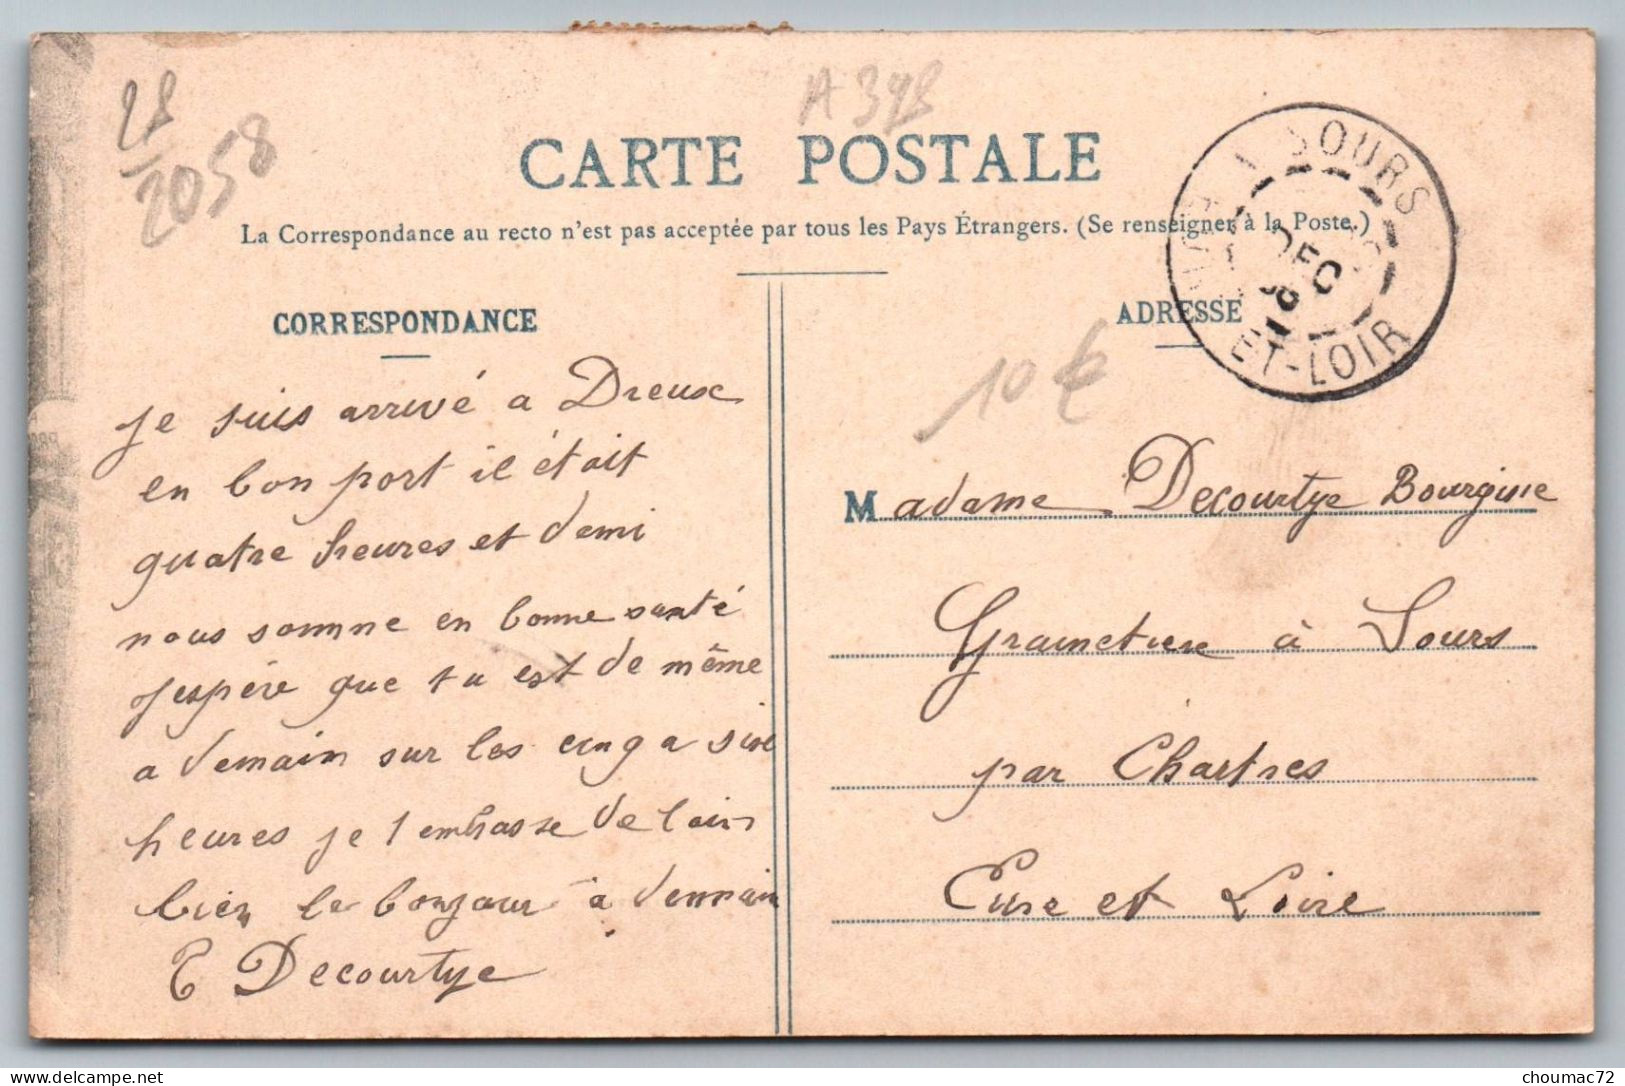 28
2058
A 398
CARTE POSTALE
La Correspondance au recto n'est pas acceptée par tous les Pays Étrangers. (Se renseigner à la Poste.)
SOURS
DEC
ET-LOIR
CORRESPONDANCE
je suis arrivé a Dreux
en bon port il était
quatre heures et demi
nous somme en bonne santé
jespère que tu est de même
a demain sur les cinq a six
heures je t embrasse de loin
bien le bonjour à demain
Decourtye
ADRESSE
10 €
Madame Decourtye Bourgine
Grainetiere à Sours
par Chartres
Eure et Loire
choumac72